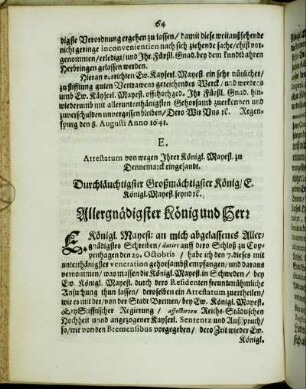 64
digste Verordnung ergehen zu lassen/ damit diese weitaussehende
nicht geringe inconvenientien nach sich ziehende sache/ ehist vor-
genommen/ erledigt/ und Ihr. Fürstl. Gnad. bey dem
Herbringen gelassen werden.
Hieran verrichten Ew. Kayserl. Mayest. ein sehr nützlicher/
zu stifftung guten Vertrawens gereichendes Werck/ und umb
Ew. Kayserl. Mayest. offthochged. Ihr. Fürstl. Gnad. hin-
wiederumb mit allerunterthänigsten Gehorsamb zuerkennen und
zuverschulden unvergessen bleiben/ Dero Wir Uns ꝛc. Regen-
spurg den 8. Augusti Anno 1641.
E.
Attestatum von wegen Ihrer Königl. Mayest. zu
Dennemarck eingesandt.
Durchläuchtigster Großmächtigster König/ E.
Königl. Mayest. seynd ꝛc.
Allergnädigster König und Herr
E. Königl. Mayest. an mich abgelassenes Aller-
gnädigstes Schreiben/ datirt auff dero Schloß zu Cop-
penhagen den 20. Octobris/ habe ich den 7 dieses mit
unterthänigster veneration gehorsambst empfangen/ und daraus
vernommen/ was massen die Königl. Mayest. in Schweden/ bey
Ew. Königl. Mayest. durch dero Residenten freundmüthmliche
Ansuchung thun lassen/ deroselben ein Attestatum zuertheilen/
wie es mit der/ von der Stadt Bremen/ bey Ew. Königl. Mayest.
ErzStifftischer Regierung/ affectirten Reichs-Städtischen
Hochheit und angezogener Kayserl. Sentents und Außspruch/
so/ wie von den Bremensibus vorgegeben/ dero Zeit wieder Ew.
Königl.